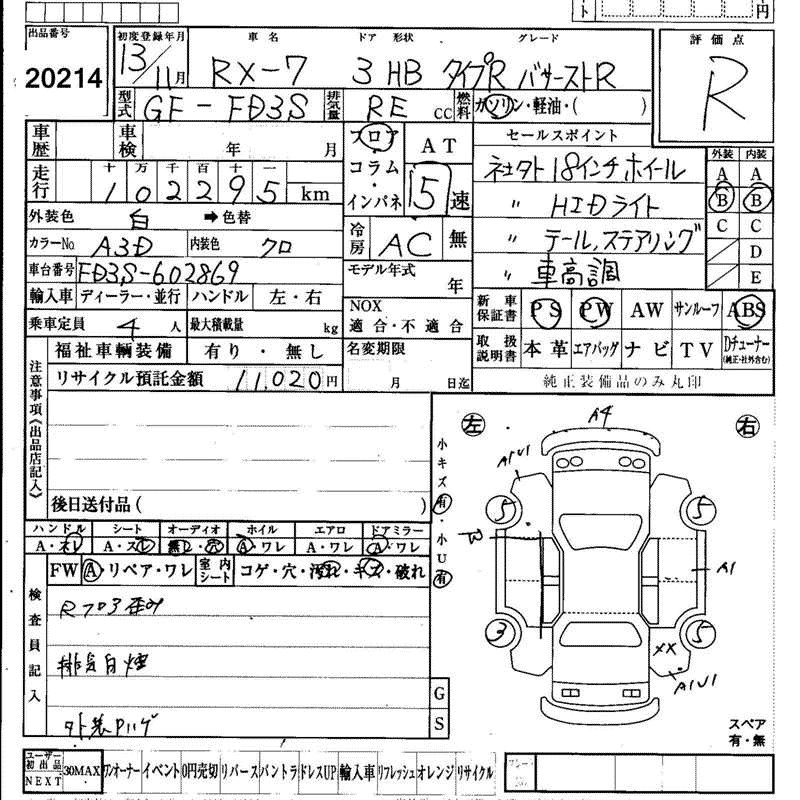 ト 円
出品番号 初度登録年月 車名 ドア 形状 グレード 評価点
20214 13/11月 RX-7 3 HB タイプR バサーストR R
型式 GF-FD3S 排気量 RE CC 燃料 ガソリン・軽油・( )
車歴 車検 年 月 フロア・コラム・インパネ AT 5速
セールスポイント 外装 内装
走行 十 万 千 百 十 一 102295 km
外装色 白 ➡色替
カラーNo A3D 内装色 クロ 冷房 AC 無
車台番号 FD3S-602869 モデル年式 年
輸入車 ディーラー・並行 ハンドル 左・右
NOX 適合・不適合
乗車定員 4 人 最大積載量 kg
福祉車輌装備 有り・無し 名変期限 月 日迄
リサイクル預託金額 11,020円
18インチ ホイール
〃 HIDライト
〃 テール,ステアリング
〃 車高調
A A
B B
C C
D
E
新車保証書 PS PW AW サンルーフ ABS
取扱説明書 本革 エアバッグ ナビ TV Dチューナー(純正・社外含む)
純正装備品のみ丸印
注意事項《出品店記入》
後日送付品( )
ハンドル シート オーディオ ホイル エアロ ドアミラー
A・スレ A・スレ 無し・穴 A・ワレ A・ワレ A・ワレ
FW A・リペア・ワレ 室内シート コゲ・穴・汚れ・キズ・破れ
検査員記入
Rフロア歪み
排気白煙
外装ハゲ
G
S
小キズ有・小U有
左 A4 右
A1U1
5 5
W A1
3 5
XX
A1U1
スペア
有・無
ユーザー初出品 NEXT 30MAX ワンオーナー イベント 0円売切 リバース バントラ ドレスUP 輸入車 リフレッシュ オレンジ リサイクル